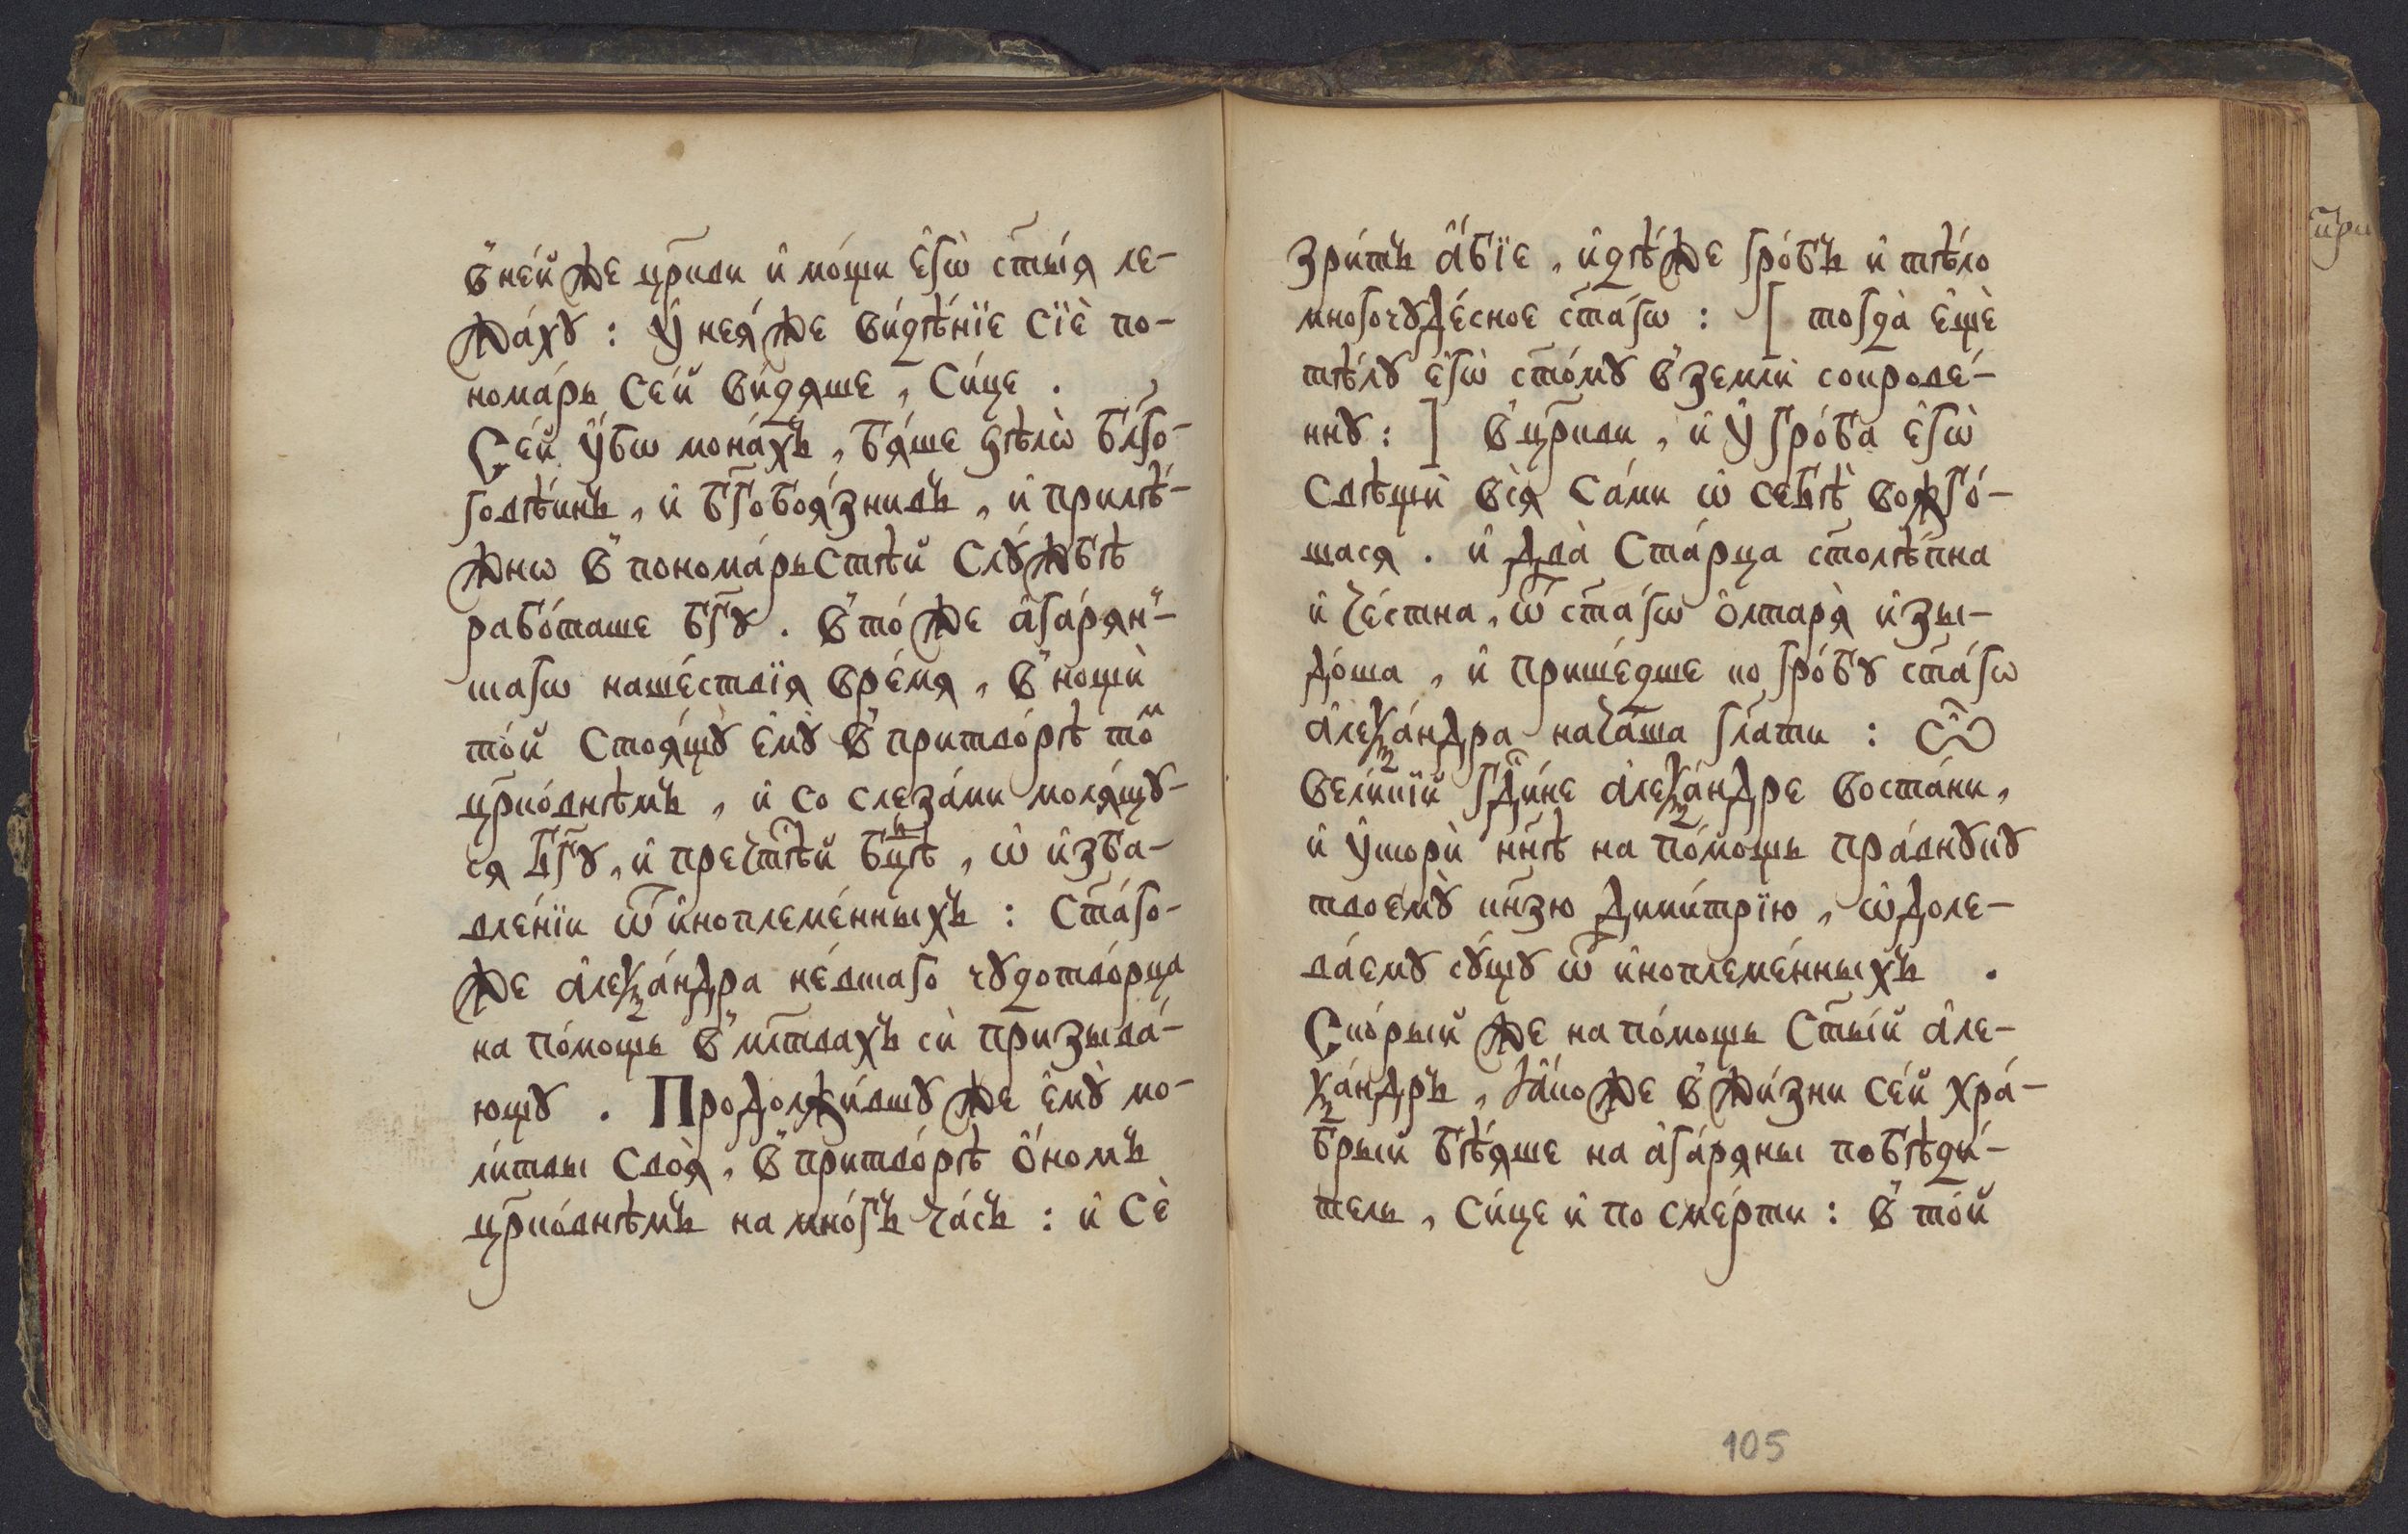 в̾не́йже цр҃кви и҆ мо́щи є҆гѡ̀ ст҃ы́ѧ ле-
жа́хꙋ : ᲂу҆ нея́же ви́дѣнїе сїѐ по-
нома́рь се́й ви́дяше , си́це .
Се́й ᲂу҆́бѡ мона́хъ , бя́ше ѕѣлѡ̀ бл҃го-
говѣ́инъ , и҆ бг҃обоя́знивъ , и҆ прилѣ́-
жнѡ в̾ понома́рьстѣй слꙋ́жбѣ
рабо́таше бг҃ꙋ . в̾ то́ же а҆га́рян̾-
скагѡ наше́ствїя вре́мя , в̾ нощѝ
то́й стоя́щꙋ є҆мꙋ̀ в̾ притво́рѣ то́м
цр҃ко́внѣмъ , и҆ со слеза́ми моля́щꙋ-
ся бг҃ꙋ , и҆ пречⷭ҇тѣй бцⷣѣ , ѡ҆ и҆зба-
вле́нїи ѿ и҆ноплеме́нныхъ : ст҃а́го-
же а҆леѯа́ндра не́вскаго чꙋдотво́рца
на по́мощь в̾ мл҃твахъ сѝ призыва́-
ющꙋ . Продолжи́вшꙋ же є҆мꙋ̀ мо-
ли́твы своя̀ , в̾ притво́рѣ ѻ҆́номъ
цр҃ко́внѣмъ на мно́гъ ча́съ : и҆ сѐ
зри́тъ а҆́бїе , и҆дѣ́же гро́бъ и҆ тѣ́ло
многочꙋде́сное ст҃а́гѡ : [ тогда̀ є҆щѐ
тѣ́лꙋ є҆гѡ̀ ст҃о́мꙋ в̾ землѝ сокрове́-
ннꙋ : ] в̾ цр҃кви , и҆ ᲂу҆ гро́ба є҆гѡ̀
свѣщы̀ всѧ̀ са́ми ѡ҆ себѣ̀ возжго́-
шася . и҆ два̀ ста́рца ст҃олѣ́пна
и҆ че́стна , ѿ ст҃а́гѡ ѻ҆лтаря̀ и҆зы-
до́ша , и҆ прише́дше ко гро́бꙋ ст҃а́гѡ
а҆леѯа́ндра нача́ша гл҃ати : ѽ
вели́кїй гд҃и́не а҆леѯа́ндре воста́ни ,
и҆ ᲂу҆скорѝ нн҃ѣ на по́мощь пра́внꙋкꙋ
твоемꙋ̀ кн҃зю дими́трїю , ѡ҆доле-
ва́емꙋ сꙋ́щꙋ ѿ и҆ноплеме́нныхъ .
Ско́рый же на по́мощь ст҃ы́й а҆ле-
ѯа́ндръ , ꙗ҆́коже в̾ жи́зни се́й хра́-
брый бѣ́яше на а҆га́ряны побѣди́-
тель , си́це и҆ по сме́рти : в̾ то́й
105